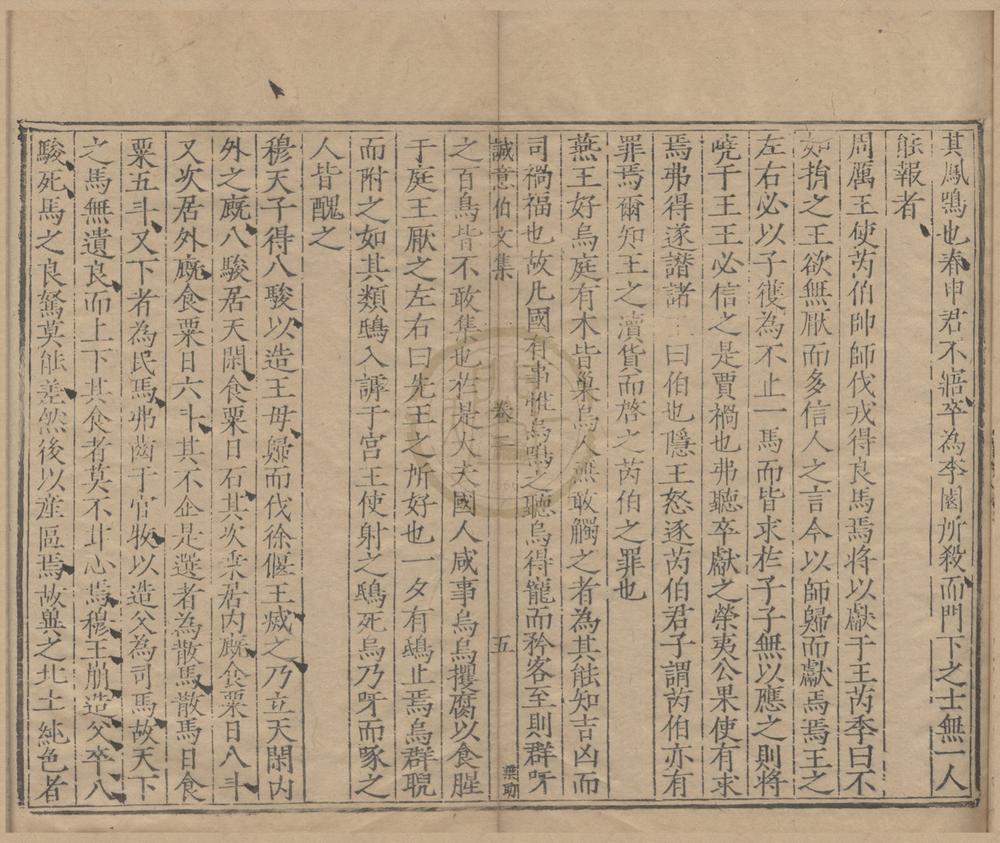 其鳳鶚也春申君不寤卒為李園所殺而門下之士無一人
能報者
周厲王使芮伯帥師伐戎得良馬焉將以獻于王芮季曰不
如捐之王欲無厭而多信人之言今以師歸而獻焉王之
左右必以子獲為不止一馬而皆求於子子無以應之則將
嘵于王王必信之是賈禍也弗聽卒獻之榮夷公果使有求
焉弗得遂譖諸王曰伯也隱王怒逐芮伯君子謂芮伯亦有
罪焉爾知王之瀆貨而啓之芮伯之罪也
燕王好烏庭有木皆巢烏人無敢觸之者為其能知吉凶而
司禍福也故凡國有事惟烏鳴之聽烏得寵而矜客至則群呀
誠意伯文集 卷三 五 葉助
之百鳥皆不敢集也於是大夫國人咸事烏烏攫腐以食腥
于庭王厭之左右曰先王之所好也一夕有鴟止焉烏群睨
而附之如其類鴟入謼于宮王使射之鴟死烏乃呀而啄之
人皆醜之
穆天子得八駿以造王母歸而伐徐偃王滅之乃立天閑內
外之廐八駿居天閑食粟日石其次乘居內廐食粟日八斗
又次居外廐食粟日六斗其不企是選者為散馬散馬日食
粟五斗又下者為民馬弗齒于官牧以造父為司馬故天下
之馬無遺良而上下其食者莫不甘心焉穆王崩造父卒八
駿死馬之良駑莫能差然後以産區焉故冀之北土純色者